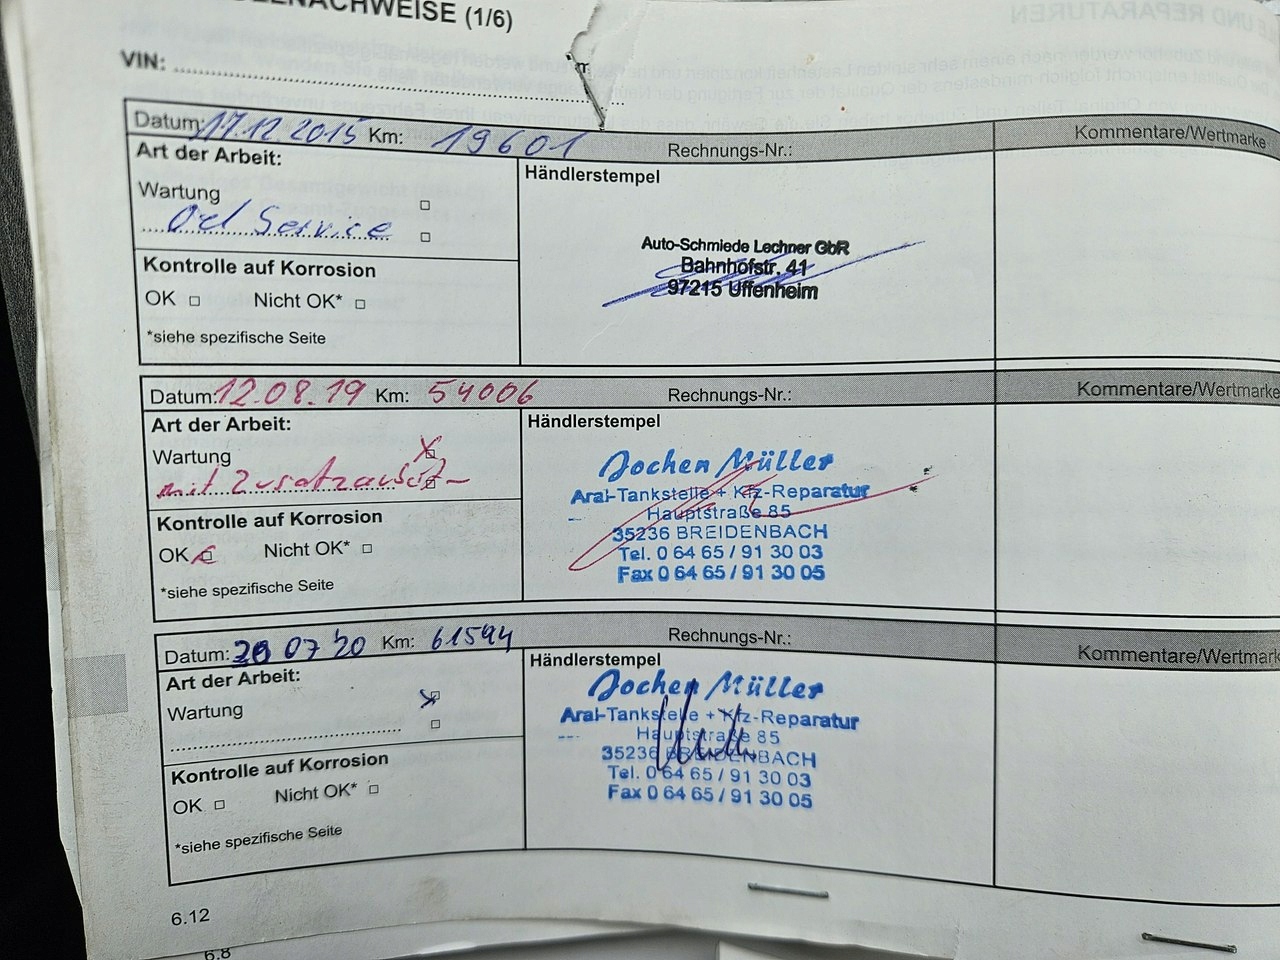 NACHWEISE (1/6)
VIN:
Datum: 17.12.2015 Km: 19601 Rechnungs-Nr.: Kommentare/Wertmarke
Art der Arbeit:
Wartung
Oel Service
Kontrolle auf Korrosion
OK Nicht OK*
*siehe spezifische Seite
Händlerstempel
Auto-Schmiede Lechner GbR
Bahnhofstr. 41
97215 Uffenheim
Datum: 12.08.19 Km: 54006 Rechnungs-Nr.: Kommentare/Wertmarke
Art der Arbeit:
Wartung X
mit Zusatzarbeit
Kontrolle auf Korrosion
OK Nicht OK*
*siehe spezifische Seite
Händlerstempel
Jochen Müller
Aral-Tankstelle + Kfz-Reparatur
Hauptstraße 85
35236 BREIDENBACH
Tel. 0 64 65 / 91 30 03
Fax 0 64 65 / 91 30 05
Datum: 07 20 Km: 61594 Rechnungs-Nr.: Kommentare/Wertmark
Art der Arbeit:
Wartung x
Kontrolle auf Korrosion
OK Nicht OK*
*siehe spezifische Seite
Händlerstempel
Jochen Müller
Aral-Tankstelle + Kfz-Reparatur
Hauptstraße 85
35236 BREIDENBACH
Tel. 0 64 65 / 91 30 03
Fax 0 64 65 / 91 30 05
6.12
6.8